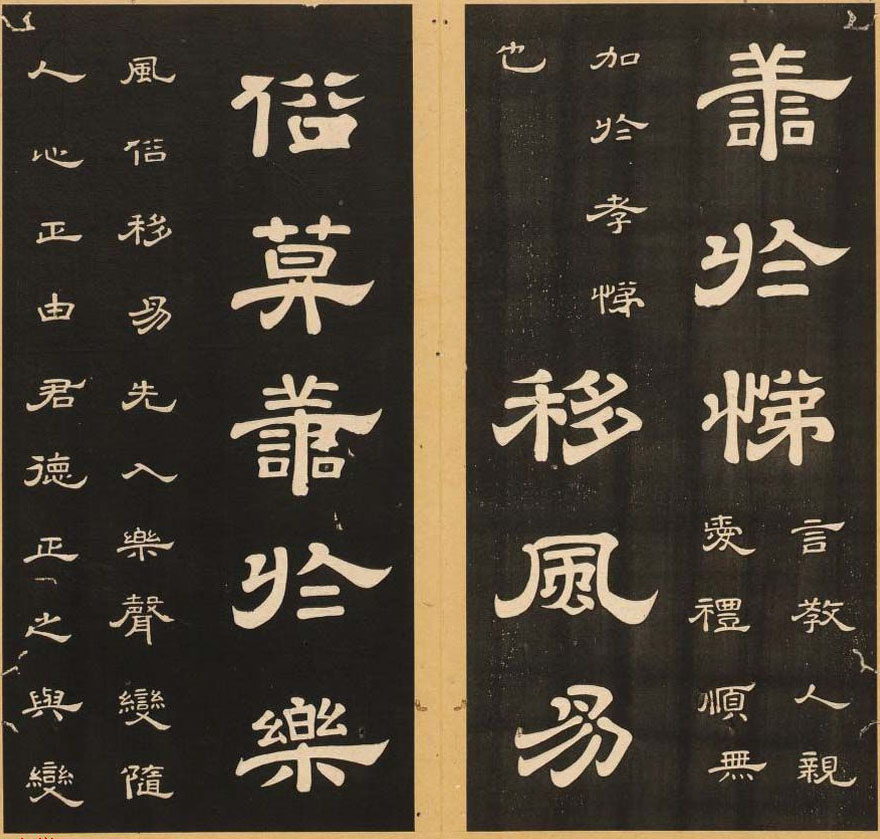 善於悌
言教人親
愛禮順無
加於孝悌
也
移風易
俗莫善於樂
風俗移易先入樂聲變隨
人心正由君德正之與變